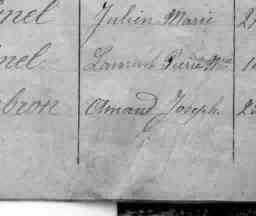 nel Julien Marie 2
nel Laurent Pierre Mie 1
bron Amand Joseph. 2